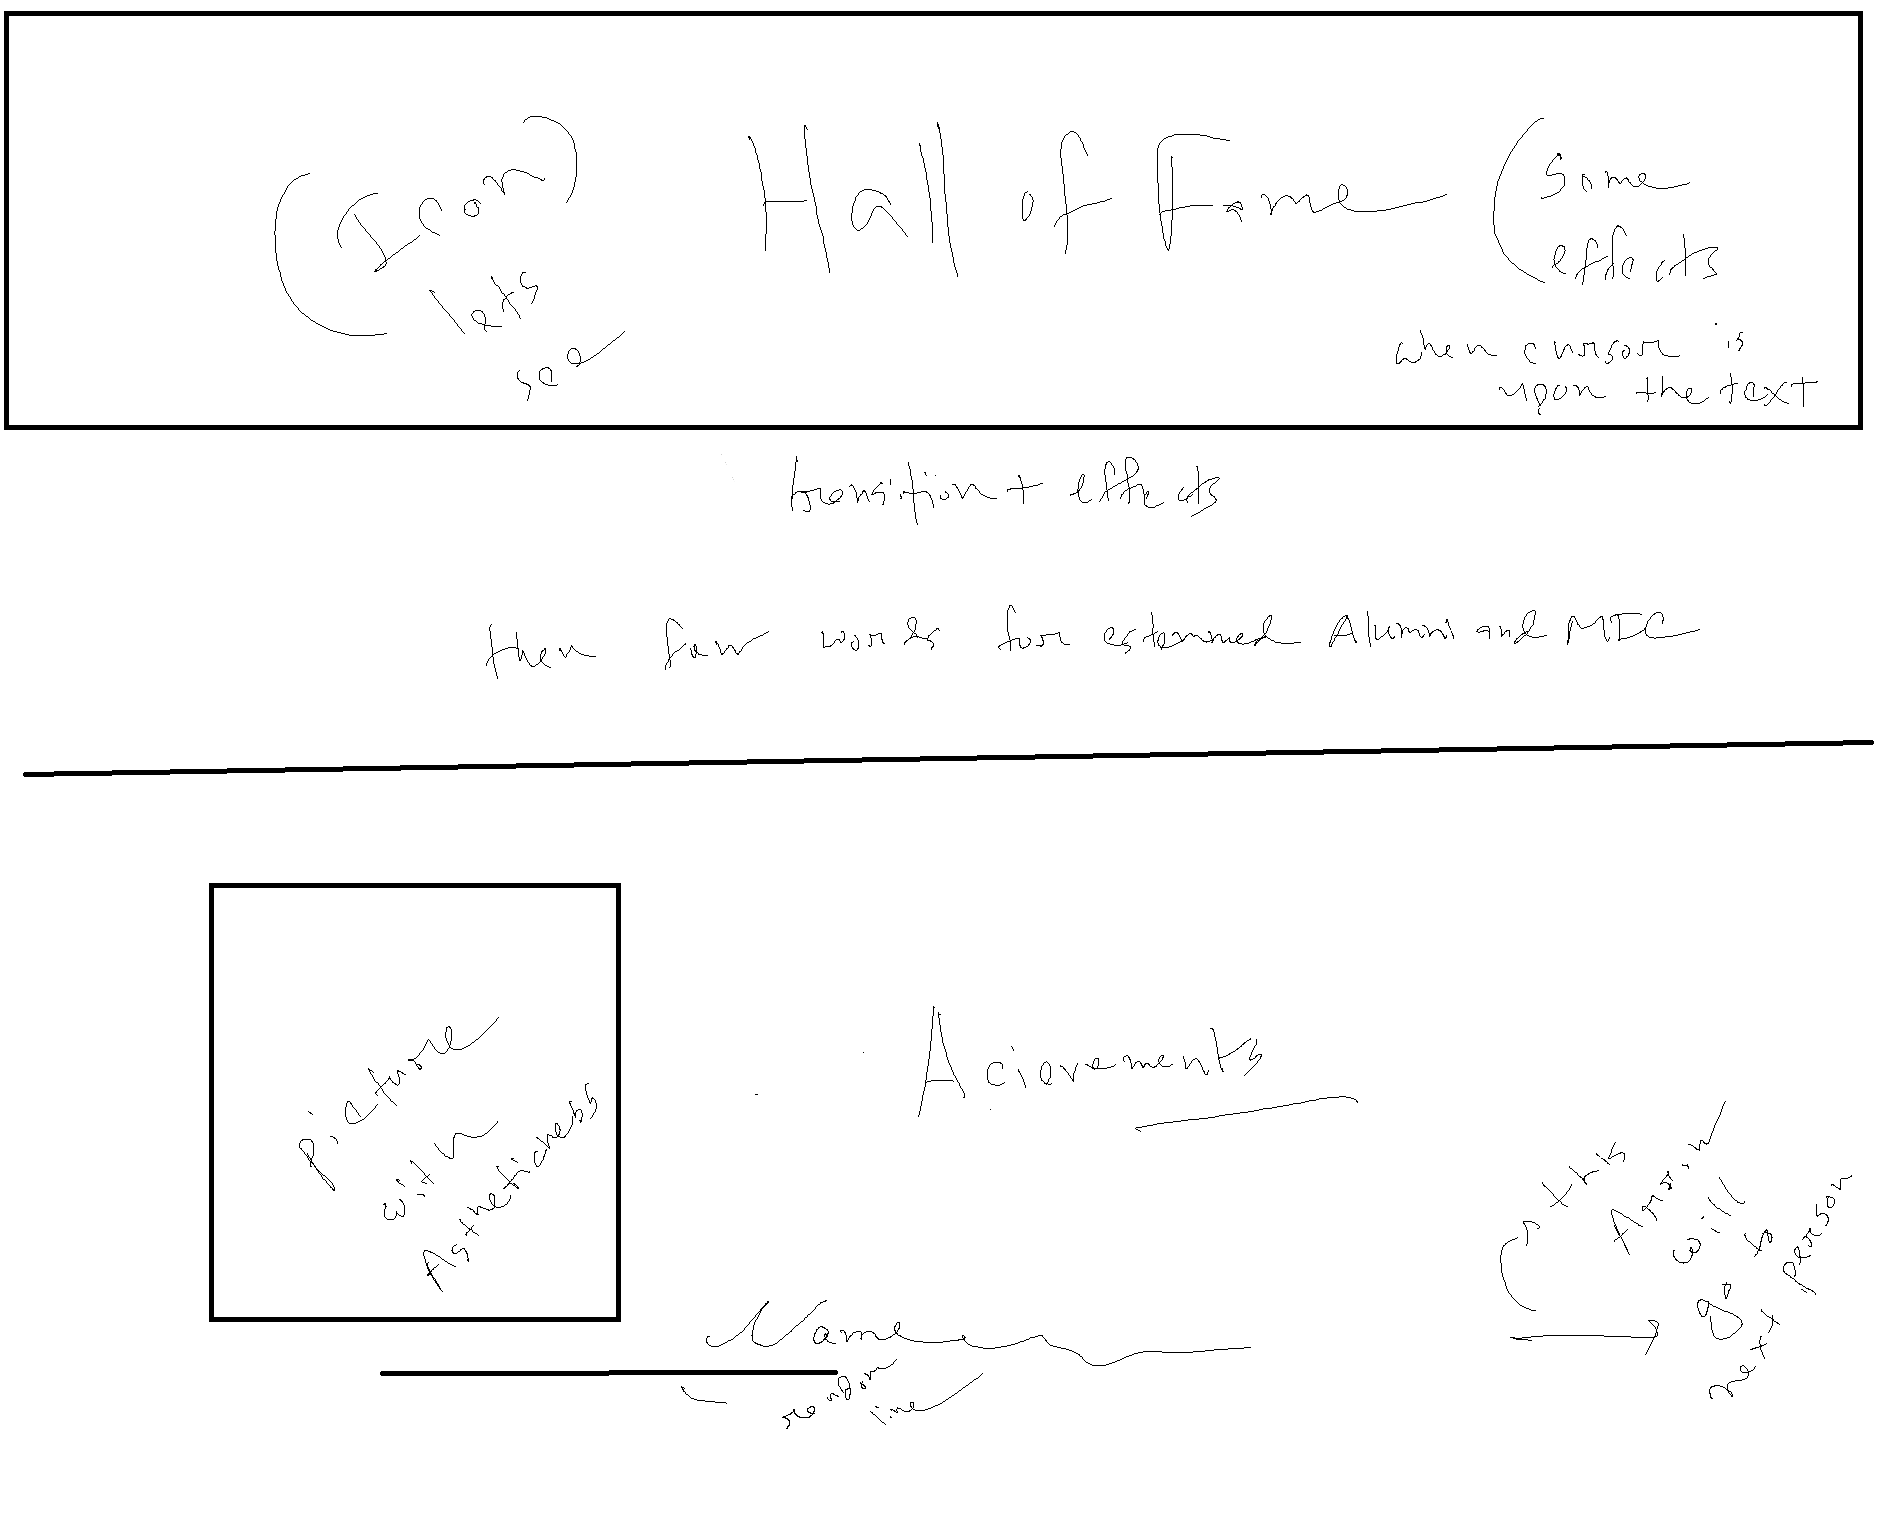 (Icon)
lets
see
Hall of Fame
(Some
effects
when cursor is
upon the text
transition + effects
then few words for estemmed Alumni and MIC
picture
with
Astheticness
Acievements
Name
random
line
this
Arrow
will
go to
next person